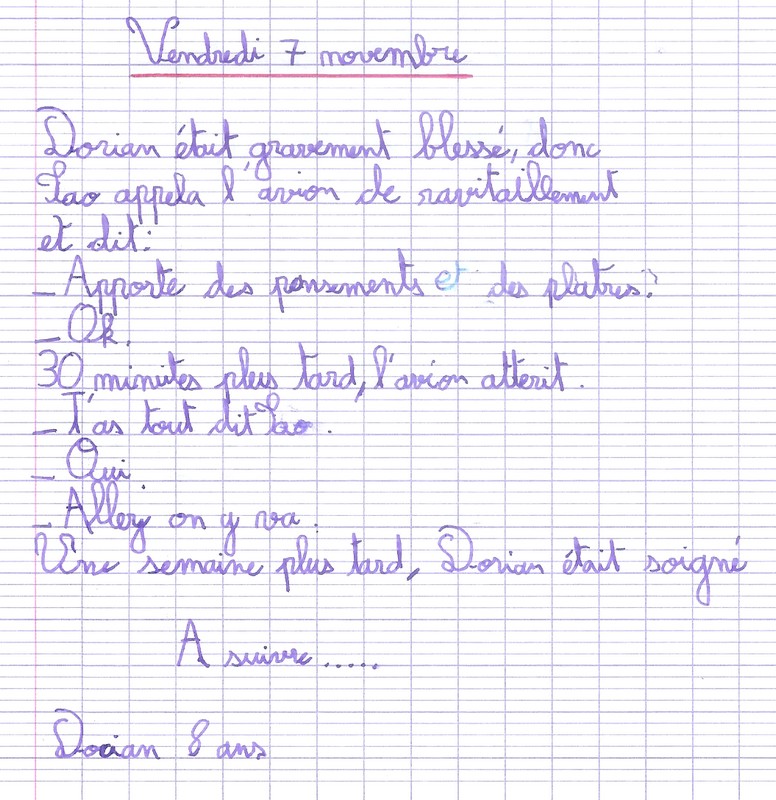 Vendredi 7 novembre
Dorian était gravement blessé, donc
Tao appela l'avion de ravitaillement
et dit:
_ Apporte des pensements et des platres?
_ Ok.
30 minutes plus tard, l'avion atterit.
_ T'as tout dit Tao.
_ Oui
_ Allez on y va.
Une semaine plus tard, Dorian était soigné
A suivre.....
Dorian 8 ans